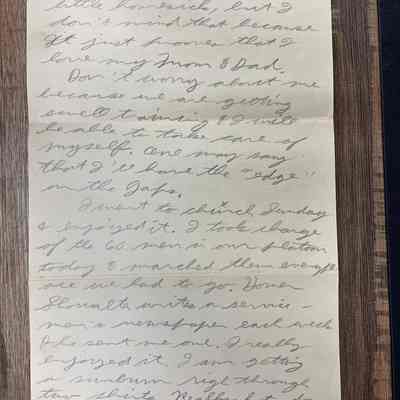 little homesick, but I
don't mind that because
It just prooves that I
love my Mom & Dad.
Don't worry about me
because we are getting
swell training & I will
be able to take care of
myself. One may say
that I'll have the "edge"
on the Japs.
I went to church Sunday
& enjoyed it. I took charge
of the 60 men in our platoon
today & marched them everypl
ace we had to go.
Showalter writes a service-
men's newspaper each week
& he sent me one. I really
enjoyed it. I am getting
a sunburn right through
two shirts.